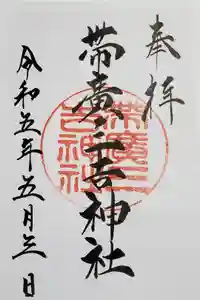 奉拝
帯廣三吉神社
帯廣三
吉神社
令和五年五月三日